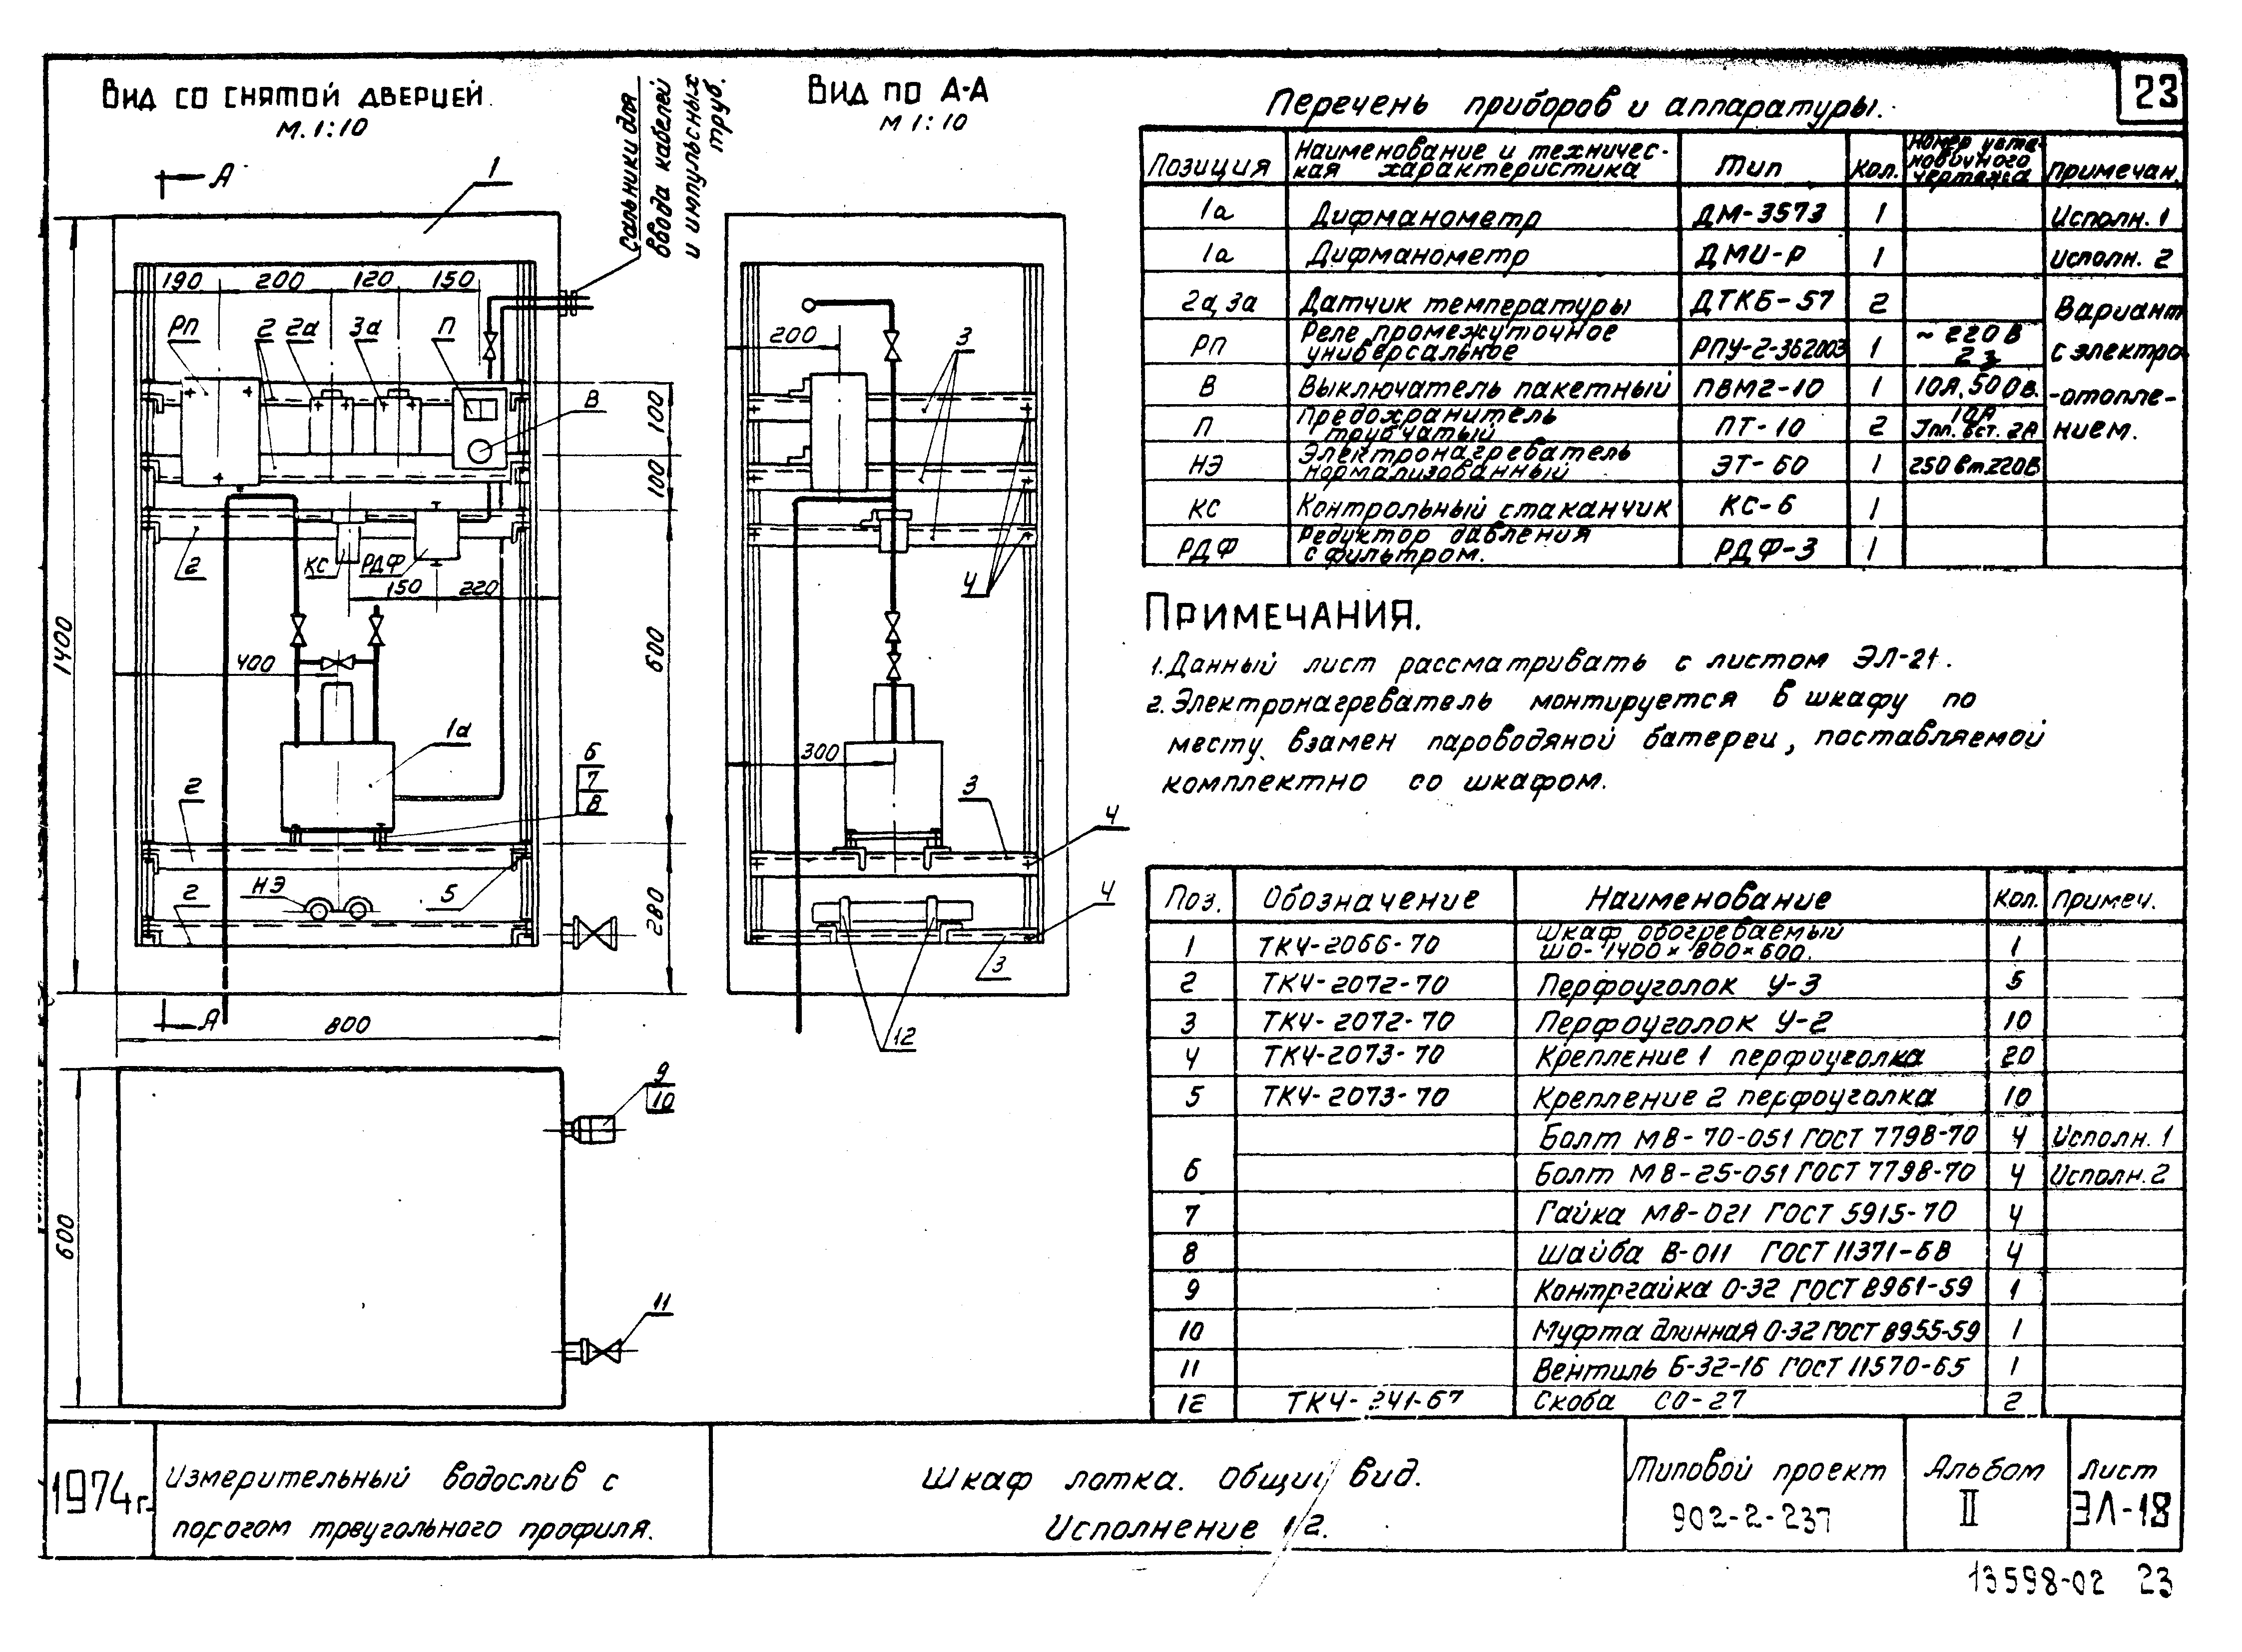 23
Вид со снятой дверцей.
М. 1:10
Вид по А-А
М 1:10
сальники для
ввода кабелей
и импульсных
труб.
А
1
1400
190 200 120 150
РП 2 2а 3а П
В
100
100
2 КС РДФ
150 220
600
400
1а
6
7
8
2
НЭ
5
2
280
А
800
200
3
4
300
3
4
4
3
12
9
10
600
11
Перечень приборов и аппаратуры.
Позиция Наименование и техничес-кая характеристика Тип Кол. Номер уста-новочного чертежа Примечан.
1а Дифманометр ДМ-3573 1 Исполн. 1
1а Дифманометр ДМИ-Р 1 Исполн. 2
2а, 3а Датчик температуры ДТКБ-57 2 Вариант
РП Реле промежуточное универсальное РПУ-2-362003 1 ~220В 2з с электро-
В Выключатель пакетный ПВМ2-10 1 10А, 500В. -отопле-
П Предохранитель трубчатый ПТ-10 2 10А Iпл. вст. 2А нием.
НЭ Электронагреватель нормализованный ЭТ-60 1 250 вт 220В
КС Контрольный стаканчик КС-6 1
РДФ Редуктор давления с фильтром. РДФ-3 1
Примечания.
1. Данный лист рассматривать с листом ЭЛ-21.
2. Электронагреватель монтируется в шкафу по
месту взамен пароводяной батереи, поставляемой
комплектно со шкафом.
Поз. Обозначение Наименование Кол. Примеч.
1 ТК4-2066-70 Шкаф обогреваемый ШО-1400×800×600. 1
2 ТК4-2072-70 Перфоуголок У-3 5
3 ТК4-2072-70 Перфоуголок У-2 10
4 ТК4-2073-70 Крепление 1 перфоуголка 20
5 ТК4-2073-70 Крепление 2 перфоуголка 10
Болт М8-70-051 ГОСТ 7798-70 4 Исполн. 1
6 Болт М8-25-051 ГОСТ 7798-70 4 Исполн. 2
7 Гайка М8-021 ГОСТ 5915-70 4
8 Шайба 8-011 ГОСТ 11371-68 4
9 Контргайка 0-32 ГОСТ 8961-59 1
10 Муфта длинная 0-32 ГОСТ 8955-59 1
11 Вентиль Б-32-16 ГОСТ 11570-65 1
12 ТК4-241-67 Скоба СО-27 2
1974г.
Измерительный водослив с
порогом треугольного профиля.
Шкаф лотка. Общий вид.
Исполнение 1/2.
Типовой проект
902-2-237
Альбом
II
Лист
ЭЛ-18
13598-02 23